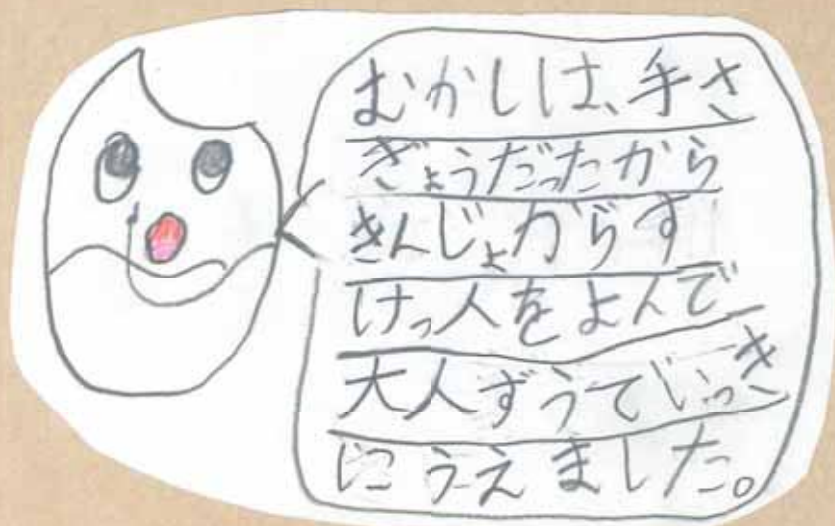 むかしは、手さ
ぎょうだったから
きんじょからす
けっ人をよんで
大人ずうでいっき
にうえました。